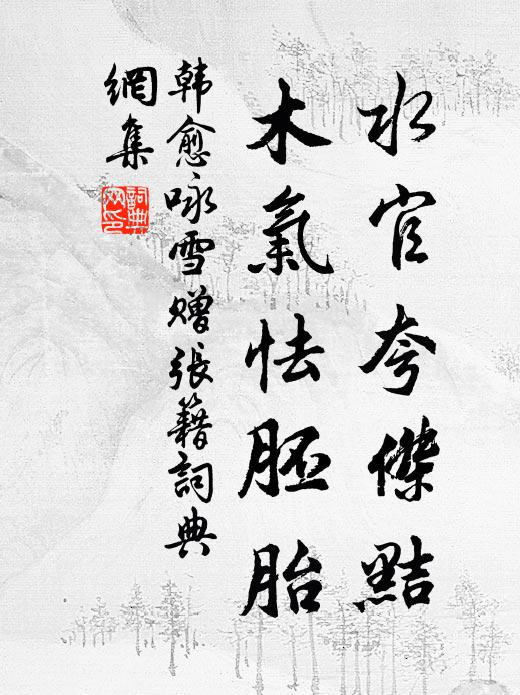 水官夸傑黠
木氣怯胚胎
韩愈咏雪赠張籍詞典
網集
詞典
网印